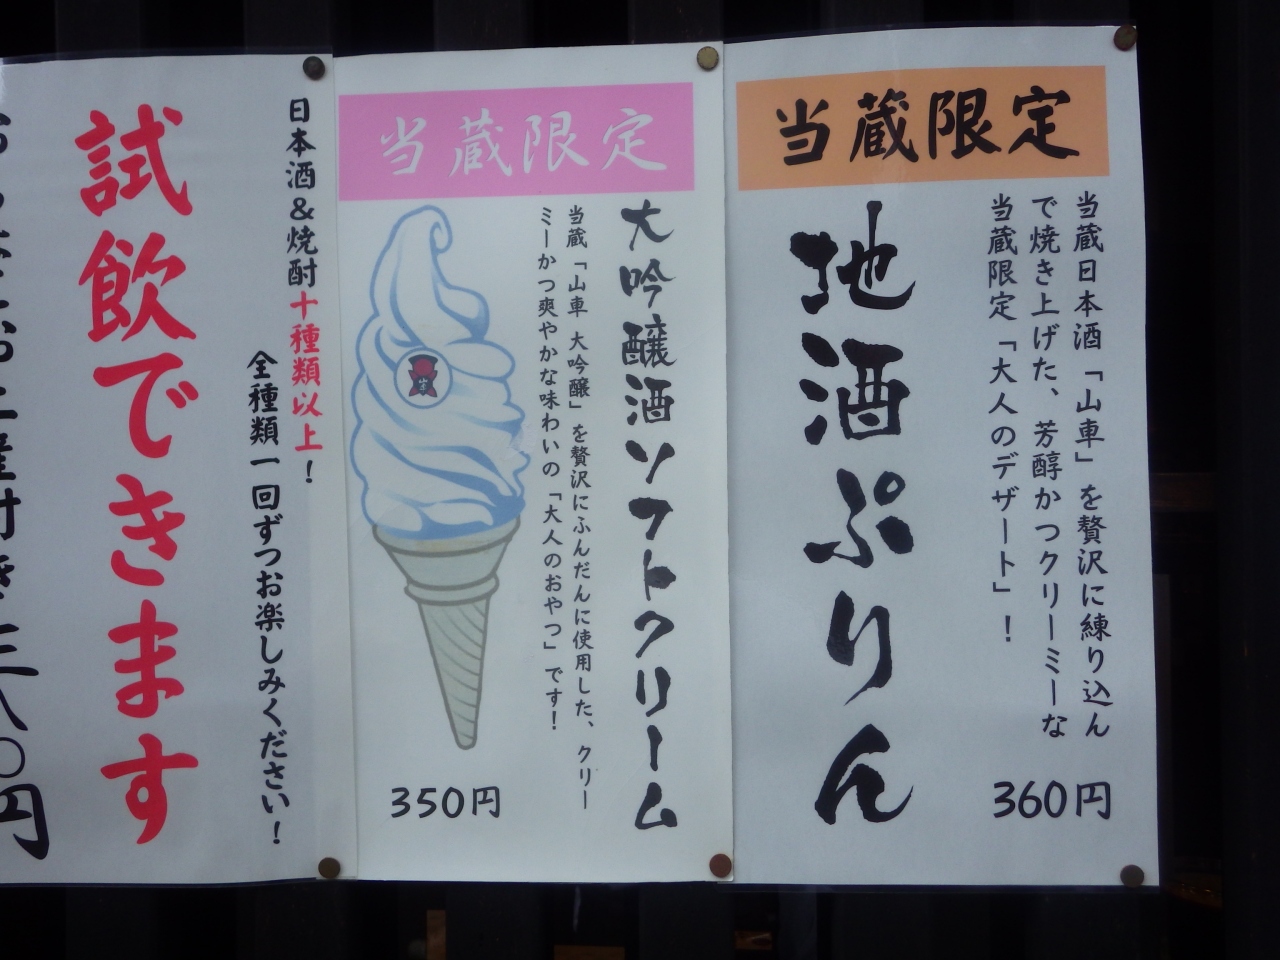 当蔵限定
当蔵日本酒「山車」を贅沢に練り込ん
で焼き上げた、芳醇かつクリーミーな
当蔵限定「大人のデザート」！
地酒ぷりん
360円
当蔵限定
大吟醸酒ソフトクリーム
当蔵「山車 大吟醸」を贅沢にふんだんに使用した、クリー
ミーかつ爽やかな味わいの「大人のおやつ」です！
350円
日本酒&焼酎十種類以上！
全種類一回ずつお楽しみください！
試飲できます
円